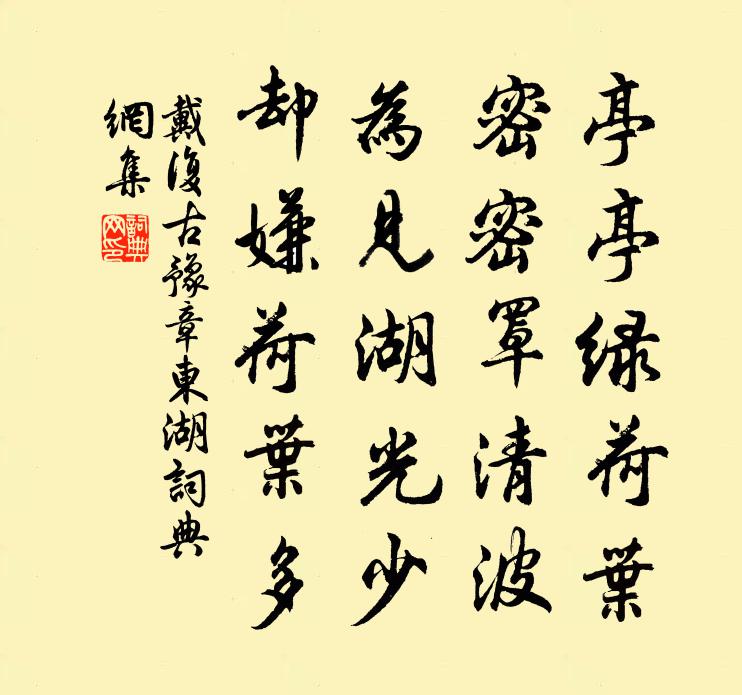 亭亭绿荷葉
密密罩清波
為見湖光少
却嫌荷葉多
戴復古豫章東湖詞典
網集
詞典
网印